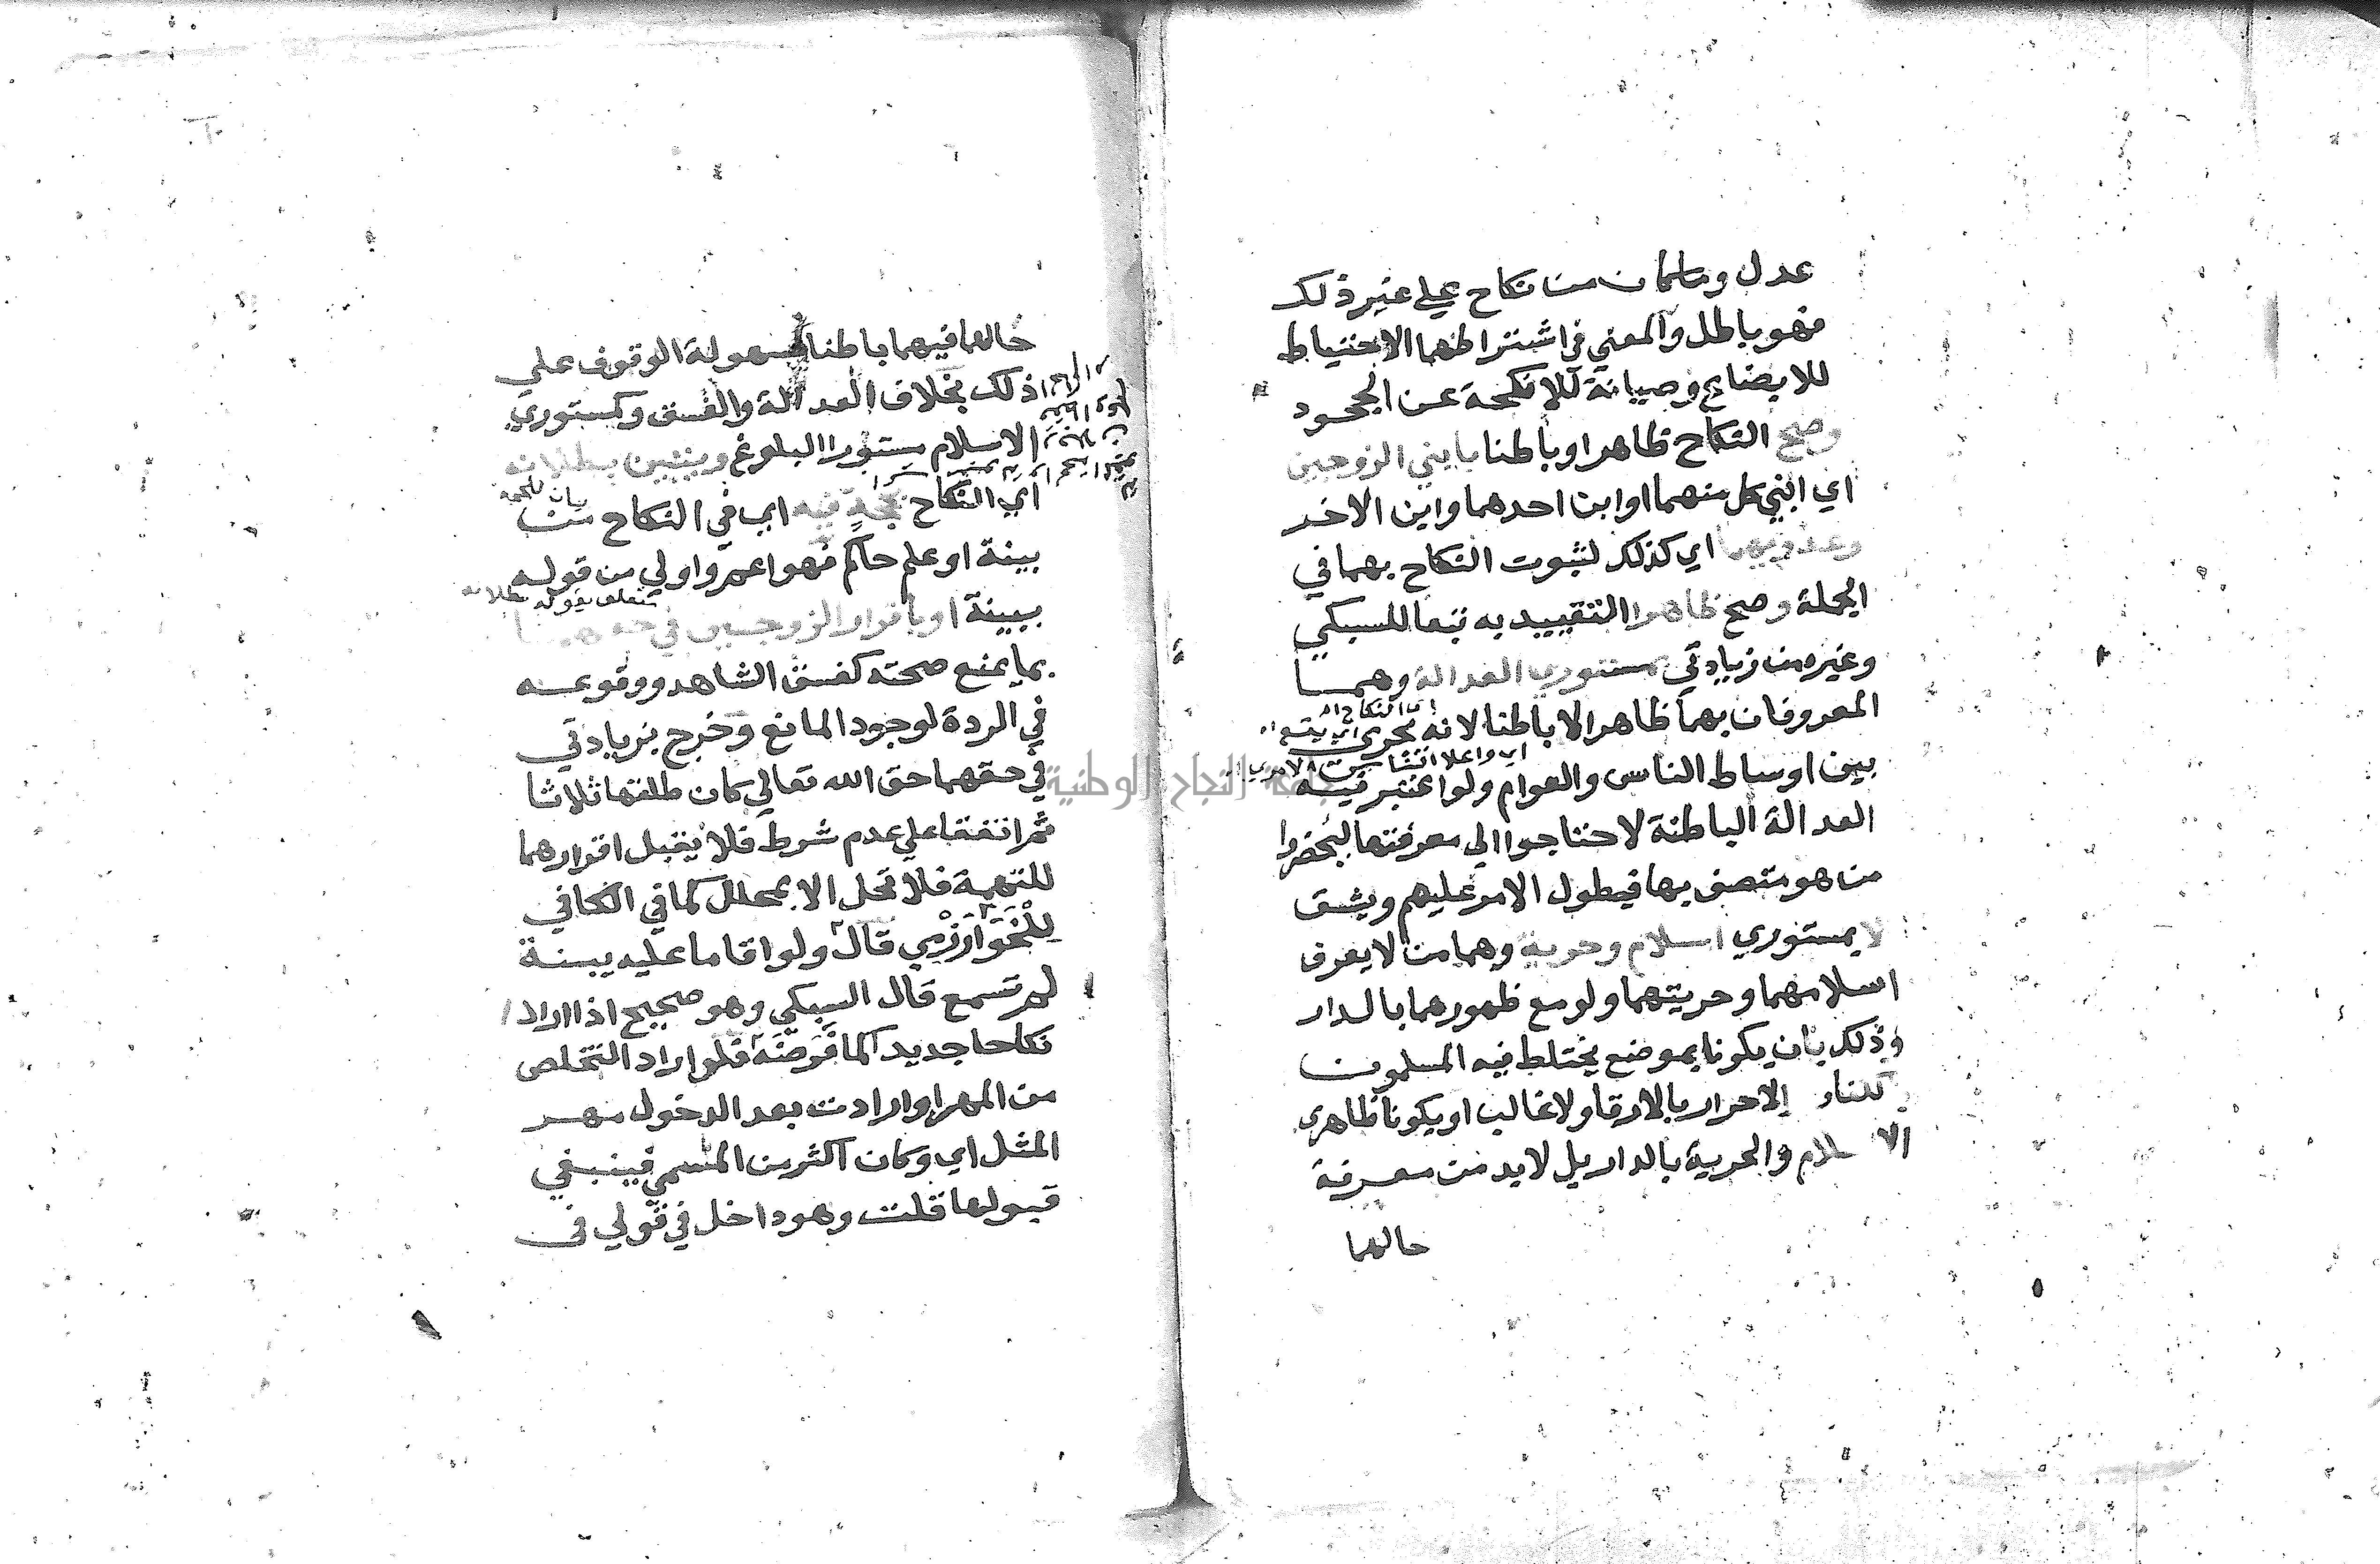 عدل وما كان من نكاح على غير ذلك
فهو باطل والمعني في اشتراطهما الاحتياط
للابضاع وصيانة للانكحة عن الجحود
وصح النكاح ظاهرا وباطنا بابني الزوجين
اي ابني كل منهما او ابن احدهما وابن الاخر
وعدويهما اي كذلك لثبوت النكاح بهما في
الجملة وصح ظاهرا التقييد به تبعا للسبكي
وغيره من زيادتي بمستوري العدالة وهمـا
المعروفان بها ظاهرا لا باطنا لانه يجري
اي النكاح
بين اوساط الناس والعوام ولو اعتبر فيه
العدالة الباطنة لاحتاجوا الي معرفتها ليحضروا
من هو متصف بها فيطول الامر عليهم ويشق
لا بمستوري اسلام وحرية وهما من لا يعرف
اسلامهما وحريتهما ولو مع ظهورهما بالدار
وذلك بان يكونا بموضع يختلط فيه المسلمون
بالكفار والاحرار بالارقا ولا غالب او يكونا ظاهري
الاسلام والحرية بالدار بل لا بد من معرفة
حالهما
حالهما فيهما باطنا لسهولة الوقوف علي
ذلك بخلاف العدالة والفسق وكمستوري
الاسلام مستورا البلوغ ويتبين بطلانه
اي النكاح بحجة فيه اي في النكاح من
بينة او علم حاكم فهو اعم واولي من قوله
متعلق بقوله بطلانه
ببينة او باقرار الزوجين في حقهما
بما يمنع صحته كفسق الشاهد ووقوعه
في الردة لوجود المانع وخرج بزيادتي
في حقهما حق الله تعالي كان طلقها ثلاثا
ثم اتفقا علي عدم شرط فلا يقبل اقرارهما
للتهمة فلا تحل الا بمحلل كما في الكافي
للخَوَارَزْمِي قال ولو اقاما عليه بينة
لم تسمع قال السبكي وهو صحيح اذا ارادا
نكاحا جديدا كما فرضه فلو اراد التخلص
من المهر او ارادت بعد الدخول مهر
المثل اي وكان اكثر من المسمي فينبغي
قبولها قلت وهو داخل في قولي في
جامعة النجاح الوطنية